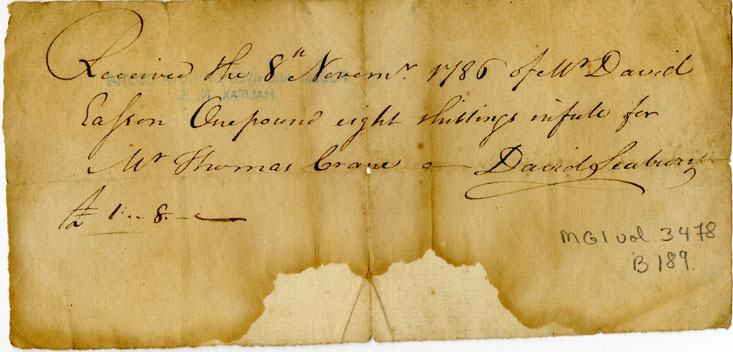 Received the 8th Novemr 1786 of Mr David
Eaſson One pound eight shillings in full for
Mr Thomas Crane — David Seabury
1 .. 8 . —
HALIFAX, N. S.
MG1 vol 3478
B189